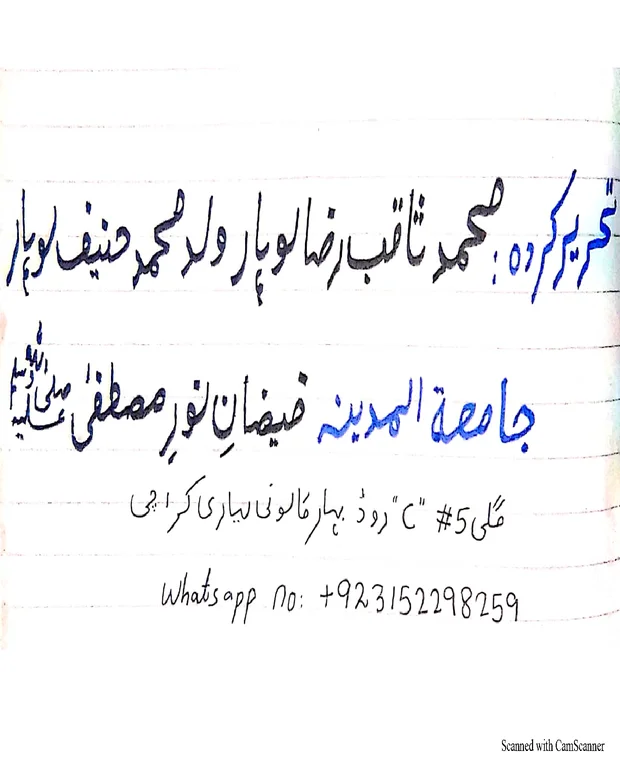 تحریر کردہ: محمد ثاقب رضا لوہار ولد محمد حنیف لوہار
جامعۃ المدینہ فیضانِ نورِ مصطفیٰ صلی اللہ علیہ وسلم
گلی 5# "C" روڈ بہار کالونی لیاری کراچی
Whatsapp no: +923152298259
Scanned with CamScanner